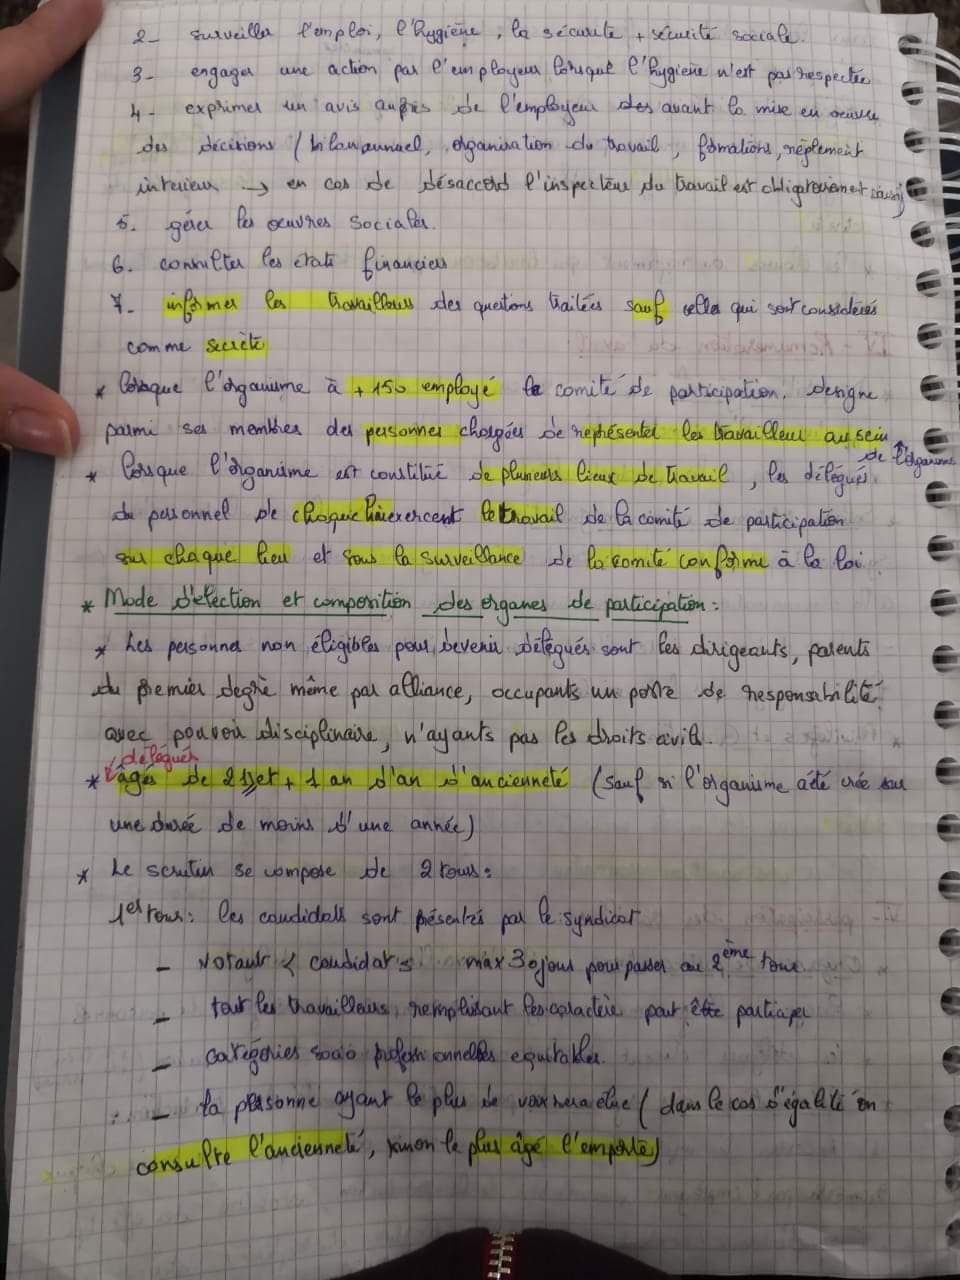 2- surveiller l'emploi, l'hygiène, la sécurité + sécurité sociale.
3- engager une action par l'employeur lorsque l'hygiène n'est pas respectée
4- exprimer un avis auprès de l'employeur des avant la mise en oeuvre
des décisions (bilan annuel, organisation du travail, fomations, règlement
interieur → en cas de désaccord l'inspecteur du travail est obligatoirement saisi)
5. gérer les oeuvres sociales.
6. consulter les états financiers
7- informer les travailleurs des questions traitées sauf celles qui sont considérés
comme secrète
* lorsque l'organisme à +150 employé le comité de participation. designe
parmi ses membres des personnes chargées de représenter les travailleur au sein
de l'organisme
* lorsque l'organisme est constitué de plusieurs lieux de travail, les délégués
du personnel de chaque lieu exercent le travail de la comité de participation
sur chaque lieu et sous la surveillance de la comité conforme à la loi.
* Mode d'election et composition des organes de participation:
* Les personnes non éligibles pour devenir délégués sont les dirigeants, parents
du premier degré même par alliance, occupants un poste de responsabilité
avec pouvoir disciplinaire, n'ayants pas les droits civils.
délégués
* âgés de 21 et + 1 an d'an d'ancienneté (sauf si l'organisme a été crée sur
une durée de moins d'une année)
* Le scrutin se compose de 2 tours:
1er tour: les candidats sont présentés par le syndicat
- votant < candidats max 30 jours pour passer au 2ème tour
- tout les travailleurs remplissant les caractère peut être participer
- catégories socio professionnelles equitables.
- la personne ayant le plus de voix sera élue (dans le cas d'égalité on
consulte l'ancienneté, sinon le plus âgé l'emporte)